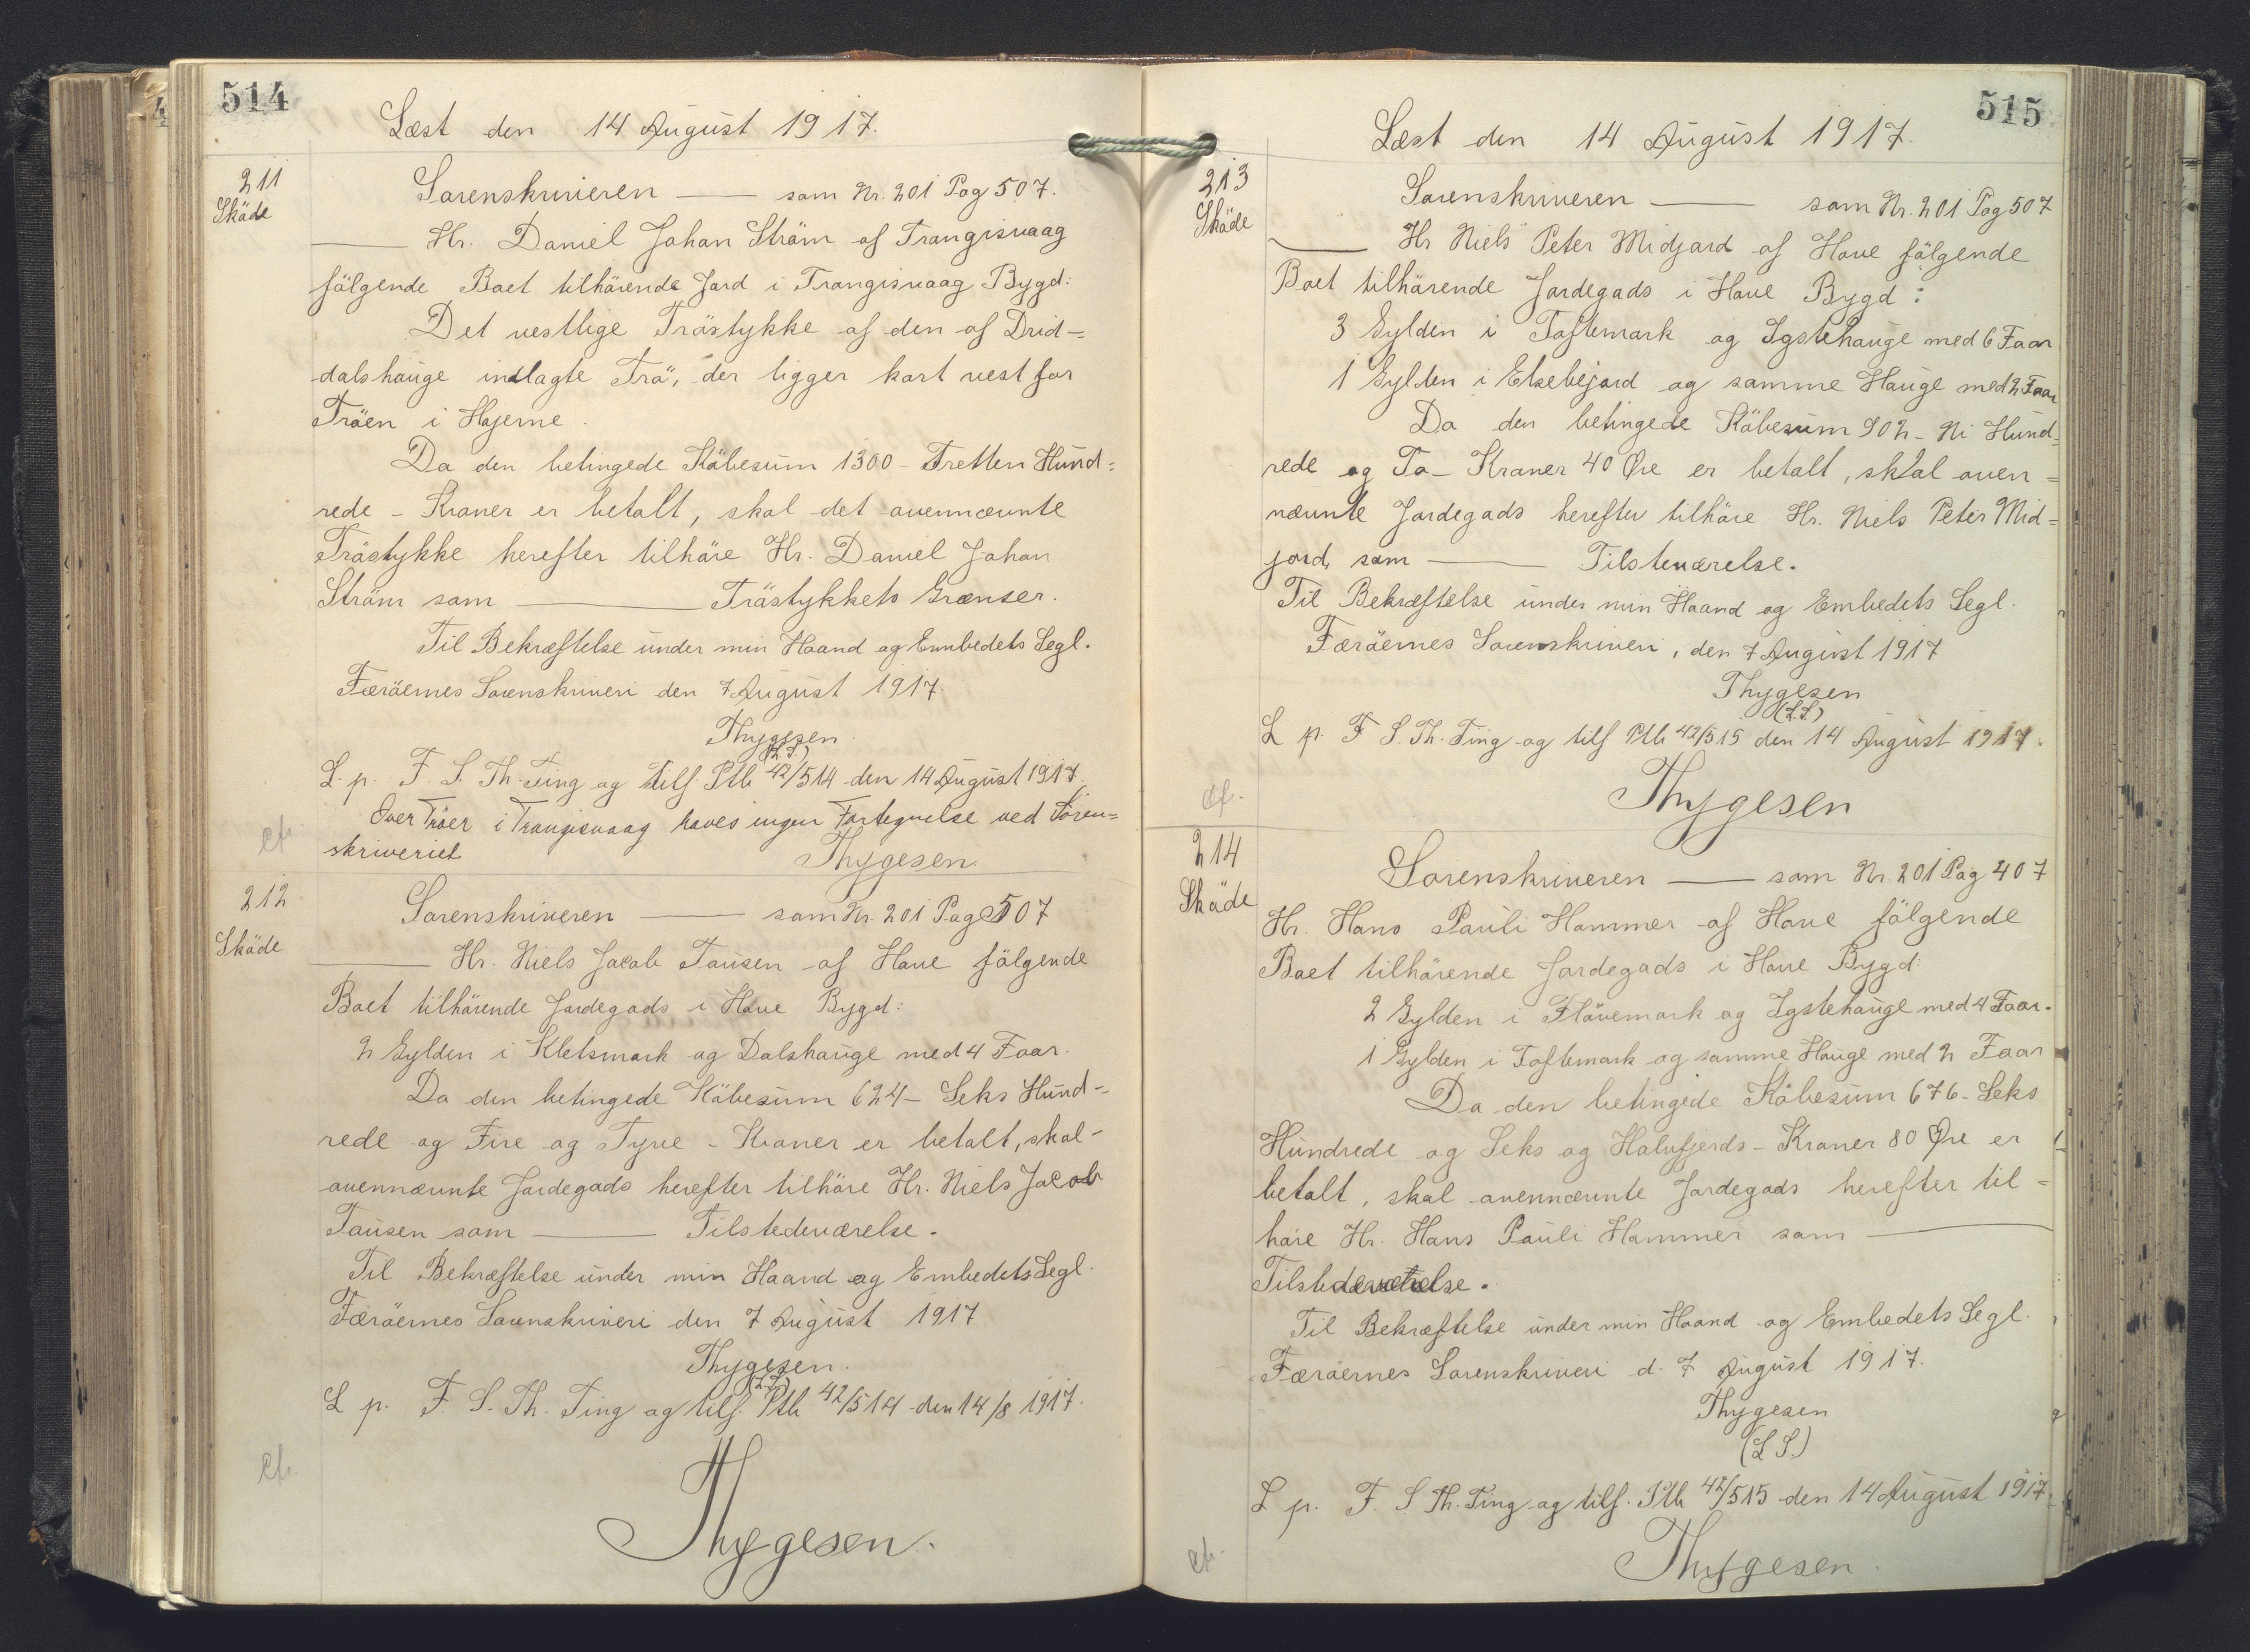 514
Læst den 14 August 1917.
211
Sköde
Sorenskriveren — som Nr. 201 Pag 507.
— Hr. Daniel Johan Ström af Trangisvaag
følgende Boet tilhörende Jord i Trangisvaag Bygd:
Det vestlige Tröstykke af den af Drid-
dalshauge indlagte Trö, der ligger kort vest for
Tröen i Hjerne.
Da den betingede Köbesum 1300 - Tretten Hund=
rede - Kroner er betalt, skal det ovennævnte
Tröstykke herefter tilhöre Hr. Daniel Johan
Ström som — Tröstykkets Grænser.
Til Bekræftelse under min Haand og Embedets Segl.
Færöernes Sorenskriveri den 7 August 1917.
Thygesen.
(L.S.)
L. p. F. S. Th. Ting og tilf. Ptb 42/514 den 14 August 1917.
Over Tröer i Trangisvaag haves ingen Fortegnelse ved Soren=
skriveriet
Thygesen.
cf.
212
Sköde
Sorenskriveren — som Nr. 201 Page 507
— Hr. Niels Jacob Tausen af Hove fölgende
Boet tilhörende Jordegods i Hove Bygd:
2 Gylden i Kletsmark og Dalshauge med 4 Faar.
Da den betingede Köbesum 624 - Seks Hund-
rede og Fire og Tyve - Kroner er betalt, skal
ovennævnte Jordegods herefter tilhöre Hr. Niels Jacob
Tausen som — Tilstedeværelse.
Til Bekræftelse under min Haand og Embedets Segl.
Færöernes Sorenskriveri den 7 August 1917
Thygesen.
(L.S.)
L p. F. S. Th. Ting og tilf. Ptb 42/514 den 14/8 1917.
cf.
Thygesen.
515
Læst den 14 August 1917.
213
Sköde
Sorenskriveren — som Nr. 201 Pag 507
— Hr Niels Peter Midjord af Hove fölgende
Boet tilhörende Jordegods i Hove Bygd:
3 Gylden i Toftemark og Lgstehauge med 6 Faar
1 Gylden i Elsebejord og samme Hauge med 2 Faar
Da den betingede Köbesum 902 - Ni Hund=
rede og To - Kroner 40 Øre er betalt, skal oven=
nævnte Jordegods herefter tilhöre Hr. Niels Peter Mid=
jord, som — Tilsteværelse.
Til Bekræftelse under min Haand og Embedets Segl.
Færöernes Sorenskriveri, den 7 August 1917
Thygesen
(L.S.)
L p. F S. Th. Ting og tilf Ptb 42/515 den 14 August 1917.
cf.
Thygesen
214
Sköde
Sorenskriveren — som Nr. 201 Pag 407
Hr. Hans Pauli Hammer af Hove fölgende
Boet tilhörende Jordegods i Hove Bygd:
2 Gylden i Flövemark og Lgstehauge med 4 Faar.
1 Gylden i Toftemark og samme Hauge med 2 Faar
Da den betingede Köbesum 676 - Seks
Hundrede og Seks og Halvfjerds - Kroner 80 Øre er
betalt, skal ovennævnte Jordegods herefter til=
höre Hr. Hans Pauli Hammer som —
Tilstedeværelse.
Til Bekræftelse under min Haand og Embedets Segl.
Færöernes Sorenskriveri d. 7 August 1917.
Thygesen
(L S.)
L p. F. S. Th. Ting og tilf. Ptb 42/515 den 14 August 1917.
cf.
Thygesen.